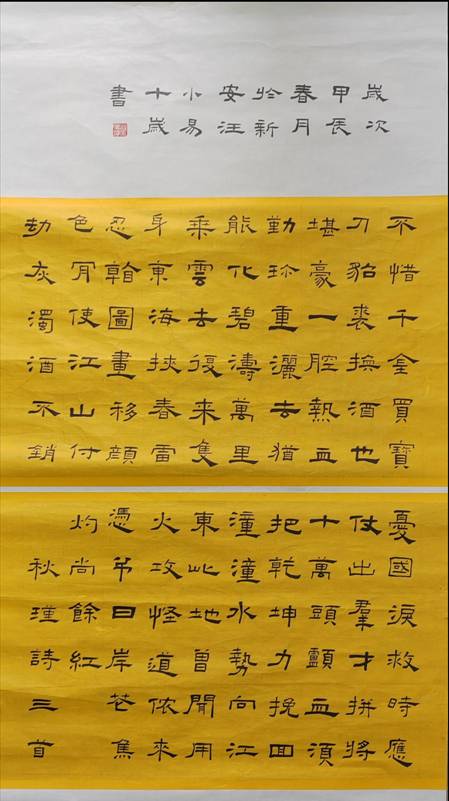 歲次
甲辰
春月
於新
安汪
小易
十歲
書
不惜千金買寶
刀貂裘換酒也
堪豪一腔熱血
勤珍重灑去猶
能化碧濤萬里
乘雲去復來隻
身東海挾春雷
忍翰圖畫移顔
色肎使江山付
劫灰濁酒不銷
憂國淚救時應
仗出羣才拼將
十萬頭顱血須
把乾坤力挽回
潼潼水勢向江
東此地曾聞用
火攻怪道儂來
憑弔日岸花焦
灼尚餘紅
秋瑾詩三首